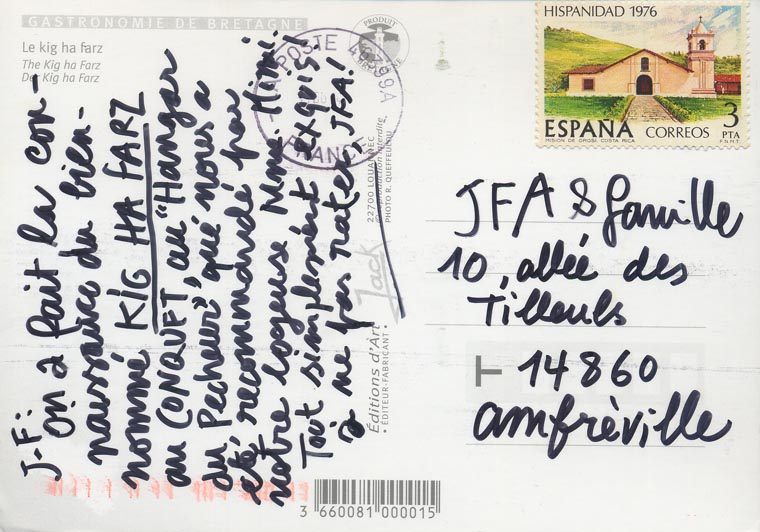 GASTRONOMIE DE BRETAGNE
Le kig ha farz
The Kig ha Farz
Der Kig ha Farz
J-F:
On a fait la con-
naissance du bien-
nommé KIG HA FARZ
au CONQUET, au "Hangar
du Pêcheur", qui nous a
été recommandé par
notre logeuse Mme Mimi.
Tout simplement EXQUIS!
à ne pas rater JFA!
PRODUIT
BRETAGNE
LA POSTE
FRANCE
22700 LOUANNEC
Reproduction interdite
PHOTO R. QUEFFEULOU
Jack
Éditions d'Art
• ÉDITEUR-FABRICANT •
HISPANIDAD 1976
3
PTA
ESPAÑA CORREOS
MISION DE OROSI, COSTA RICA
F.N.M.T.
JFA & famille
10, allée des
Tilleuls
T 14860
amfréville
3 660081 000015